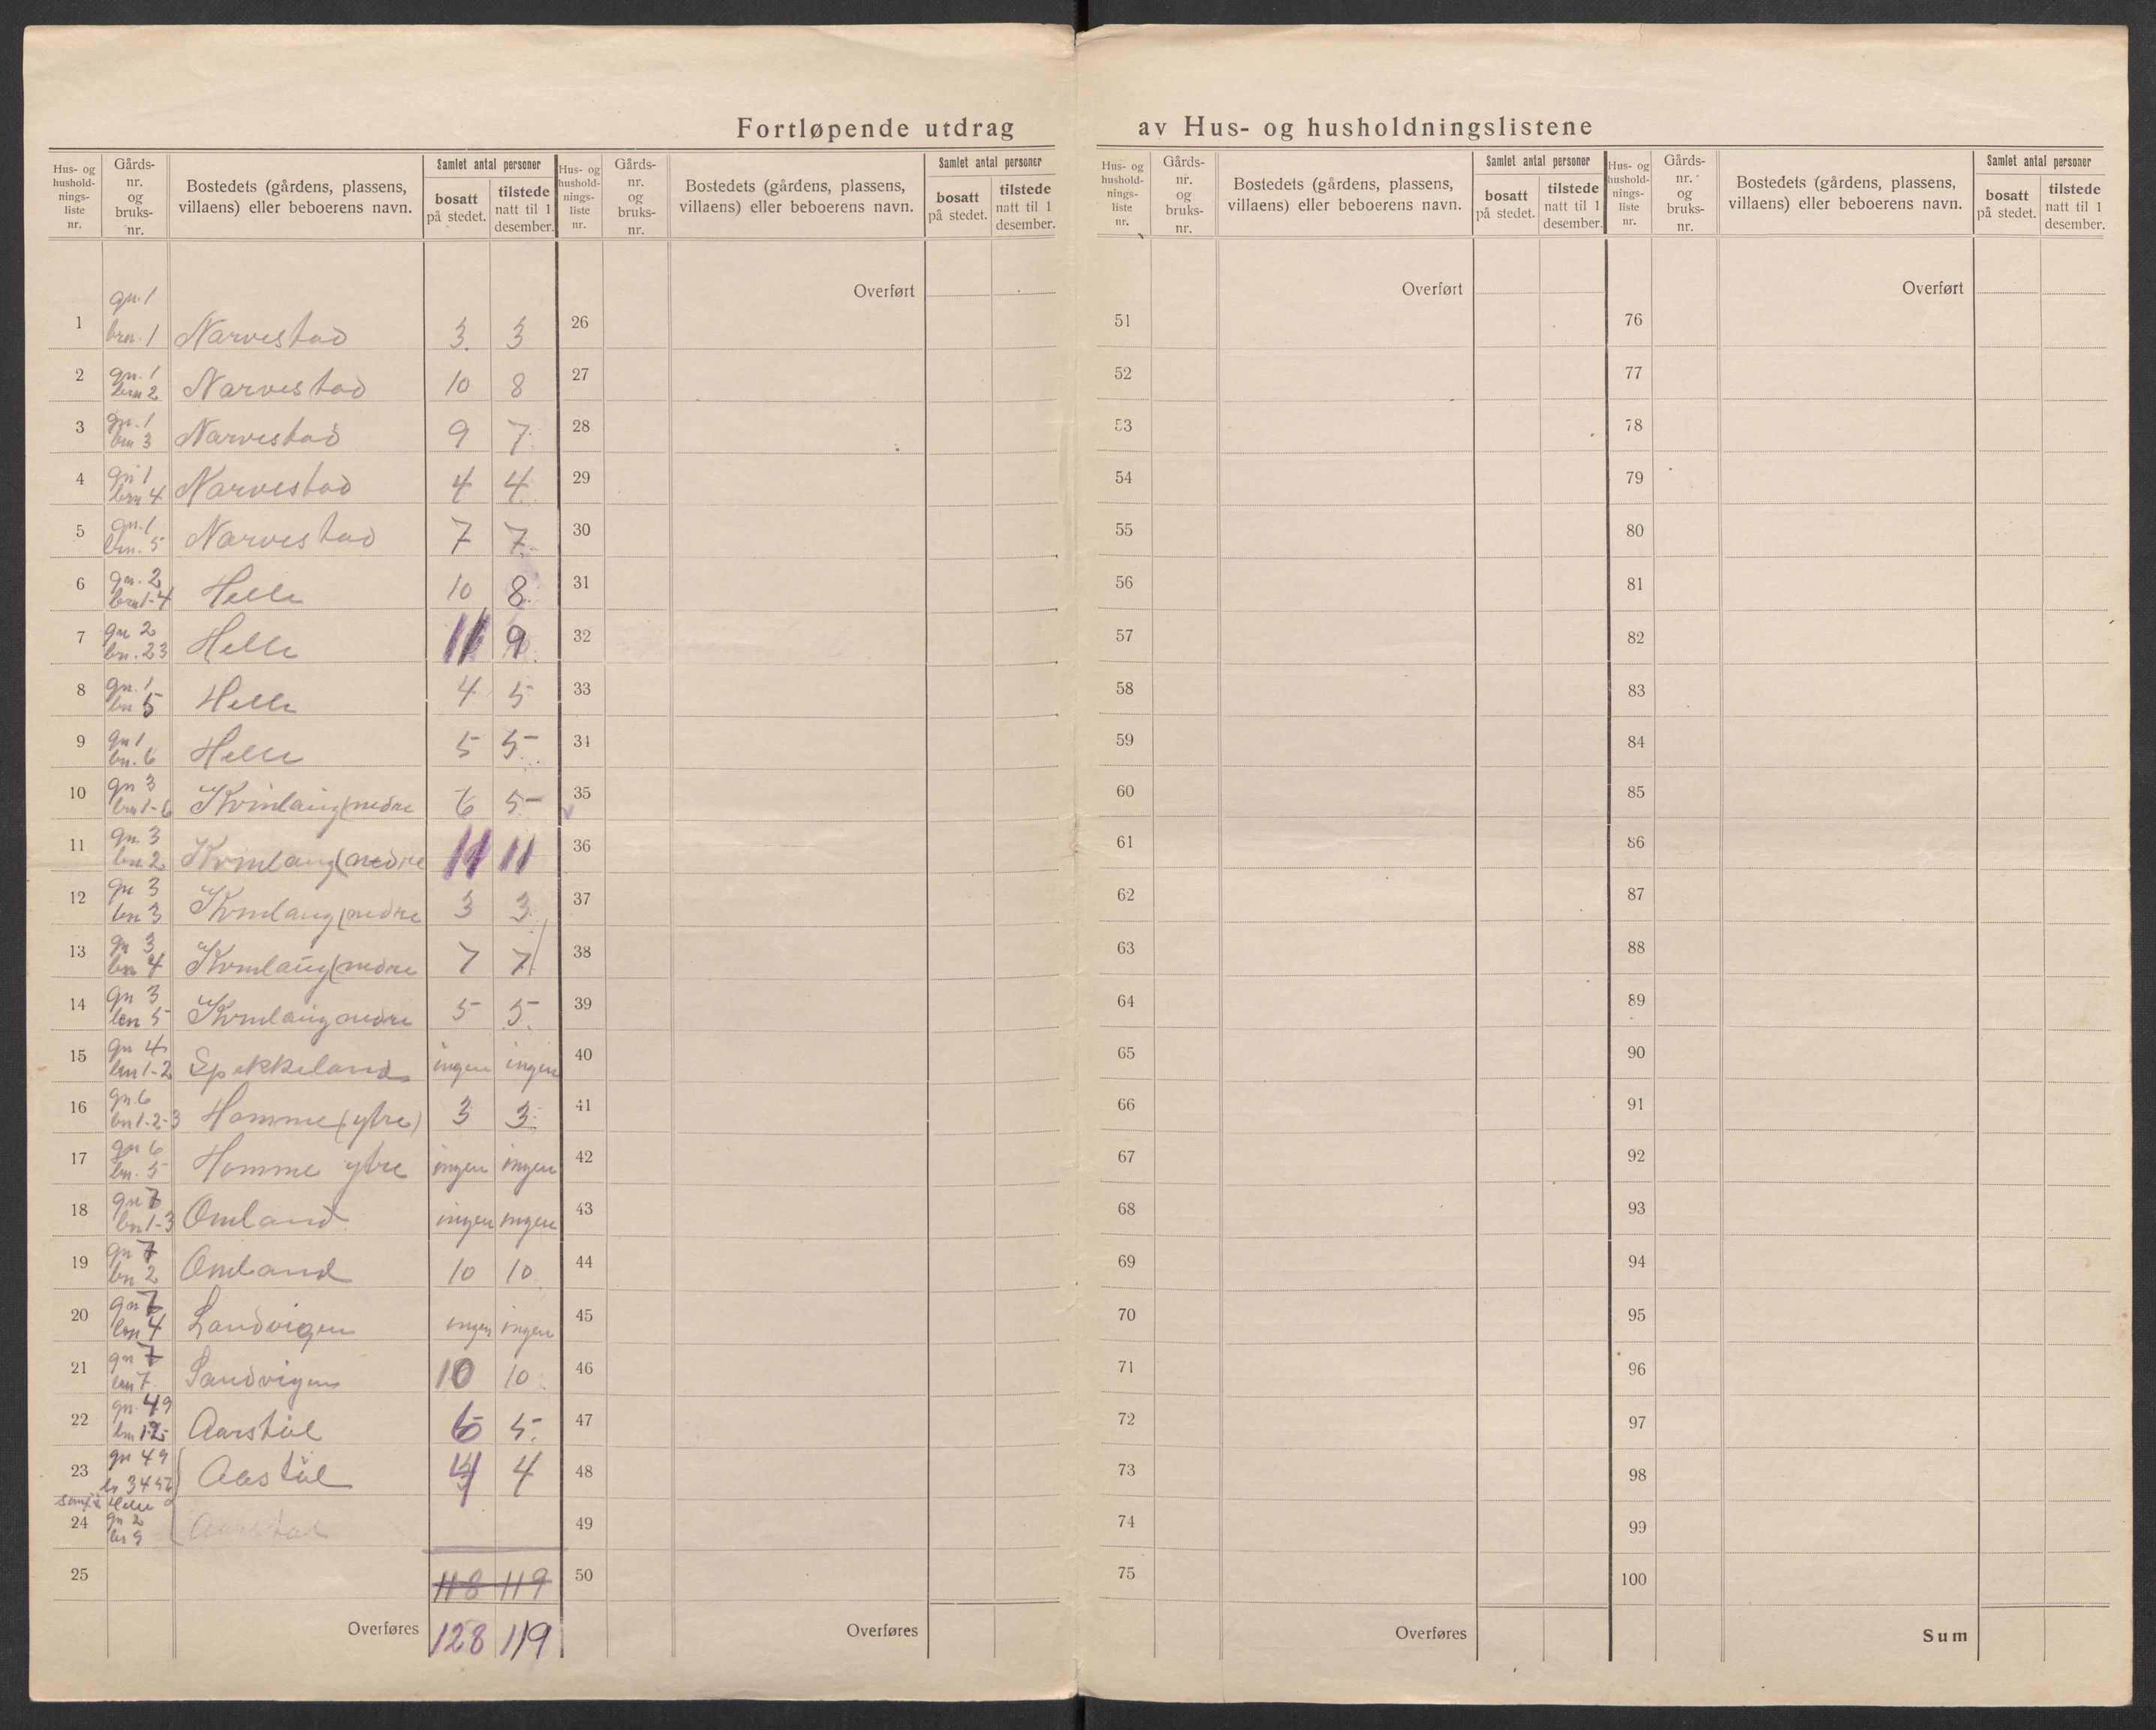 Fortløpende utdrag av Hus- og husholdningslistene
Hus- og hushold-nings-liste nr. Gårds-nr. og bruks-nr. Bostedets (gårdens, plassens, villaens) eller beboerens navn. Samlet antal personer bosatt på stedet. tilstede natt til 1 desember.
Hus- og hushold-nings-liste nr. Gårds-nr. og bruks-nr. Bostedets (gårdens, plassens, villaens) eller beboerens navn. Samlet antal personer bosatt på stedet. tilstede natt til 1 desember.
Hus- og hushold-nings-liste nr. Gårds-nr. og bruks-nr. Bostedets (gårdens, plassens, villaens) eller beboerens navn. Samlet antal personer bosatt på stedet. tilstede natt til 1 desember.
Hus- og hushold-nings-liste nr. Gårds-nr. og bruks-nr. Bostedets (gårdens, plassens, villaens) eller beboerens navn. Samlet antal personer bosatt på stedet. tilstede natt til 1 desember.
1 gn. 1 brn. 1 Narvestad 3 3
2 gn. 1 brn 2 Narvestad 10 8
3 gn. 1 bn 3 Narvestad 9 7
4 gn 1 brn 4 Narvestad 4 4
5 gn. 1 brn. 5 Narvestad 7 7
6 gn. 2 brn 1-4 Helle 10 8
7 gn 2 bn. 23 Helle 11 9
8 gn. 1 bn 5 Helle 4 5
9 gn 1 bn. 6 Helle 5 5
10 gn 3 brn 1-6 Kvinlaug (nedre 6 5
11 gn. 3 bn 2 Kvinlaug (nedre 11 11
12 gn 3 bn 3 Kvinlaug (nedre 3 3
13 gn 3 bn 4 Kvinlaug (nedre 7 7
14 gn 3 bn 5 Kvinlaug nedre 5 5
15 gn 4 bn 1-2 Spekkeland ingen ingen
16 gn 6 bn 1-2-3 Homme (ytre) 3 3
17 gn 6 bn. 5 Homme ytre ingen ingen
18 gn 7 bn 1-3 Omland ingen ingen
19 gn 7 bn 2 Omland 10 10
20 gn 7 bn 4 Sandvigen ingen ingen
21 gn 7 bn 7 Sandvigen 10 10
22 gn. 49 Aarstøl 5
23 gn 49 Aastøl 4 4
24 Helle gn 2 bn 9 Aarstøl
25 118 119
Overføres 128 119
Overført
26
27
28
29
30
31
32
33
34
35
36
37
38
39
40
41
42
43
44
45
46
47
48
49
50
Overføres
Overført
51
52
53
54
55
56
57
58
59
60
61
62
63
64
65
66
67
68
69
70
71
72
73
74
75
Overføres
Overført
76
77
78
79
80
81
82
83
84
85
86
87
88
89
90
91
92
93
94
95
96
97
98
99
100
Sum